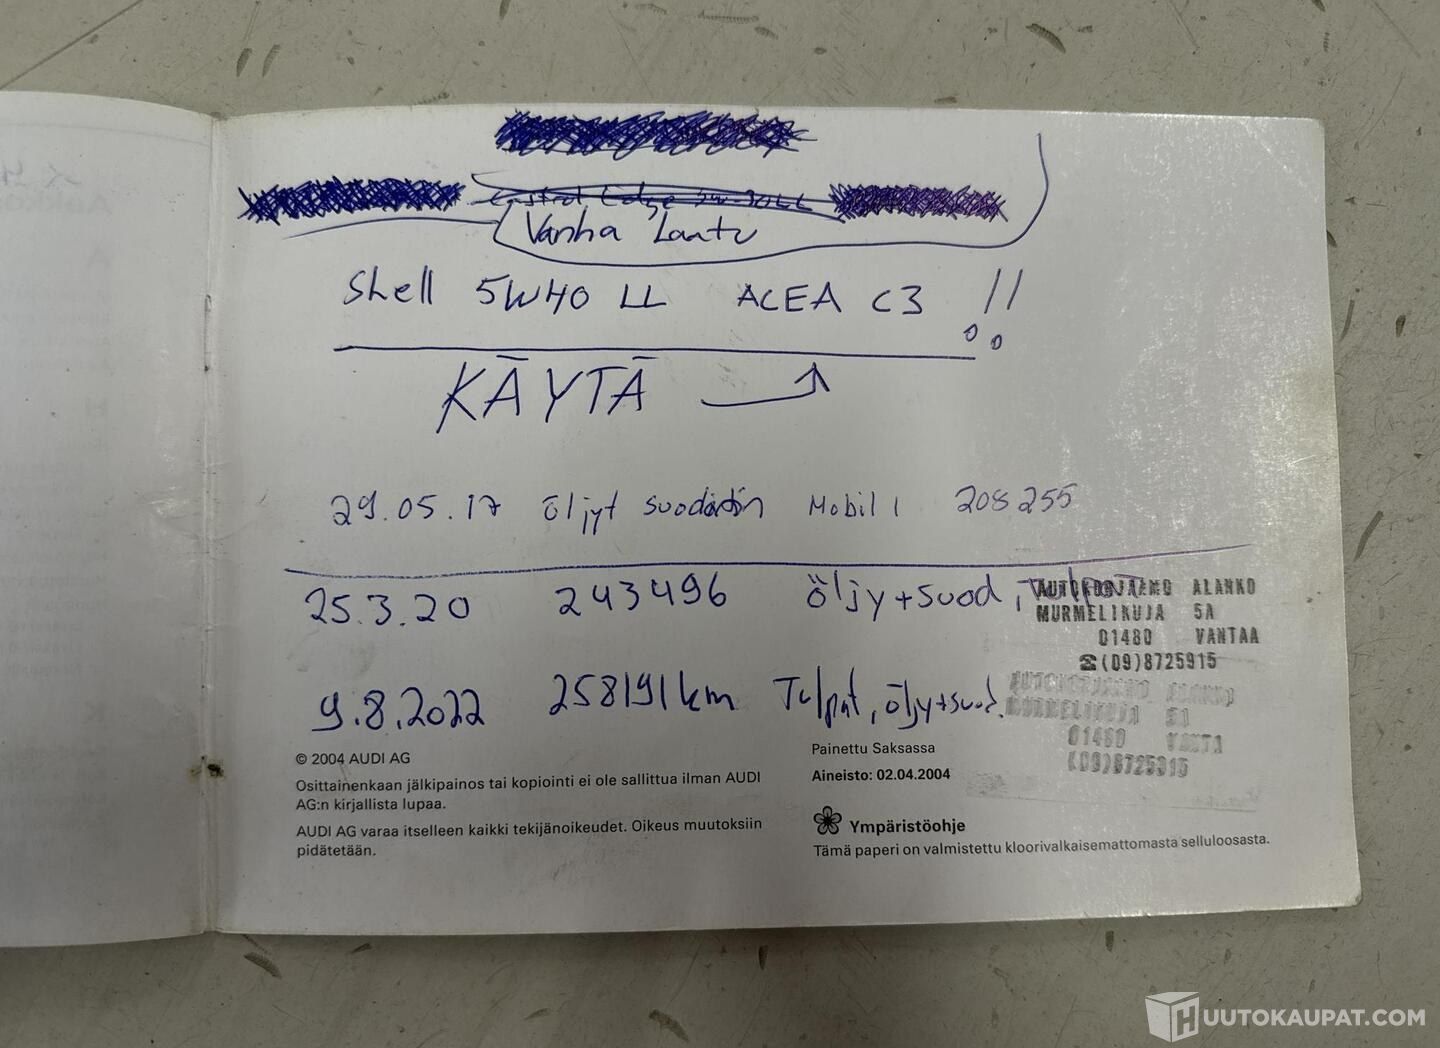 Castrol Edge 5W-30 LL
Vanha Laatu
Shell 5W40 LL ACEA C3 !!
KÄYTÄ
29.05.17 Öljyt suodatin Mobil 1 208255
25.3.20 243496 Öljy+suod, Tulpat
AUTOKORJAAMO ALANKO
MURMELIKUJA 5A
01480 VANTAA
☎(09)8725915
9.8.2022 258191km Tulpat, öljy+suod.
AUTOKORJAAMO ALANKO
MURMELIKUJA 5A
01480 VANTA
(09)8725915
© 2004 AUDI AG
Osittainenkaan jälkipainos tai kopiointi ei ole sallittua ilman AUDI
AG:n kirjallista lupaa.
AUDI AG varaa itselleen kaikki tekijänoikeudet. Oikeus muutoksiin
pidätetään.
Painettu Saksassa
Aineisto: 02.04.2004
Ympäristöohje
Tämä paperi on valmistettu kloorivalkaisemattomasta selluloosasta.
HUUTOKAUPAT.COM